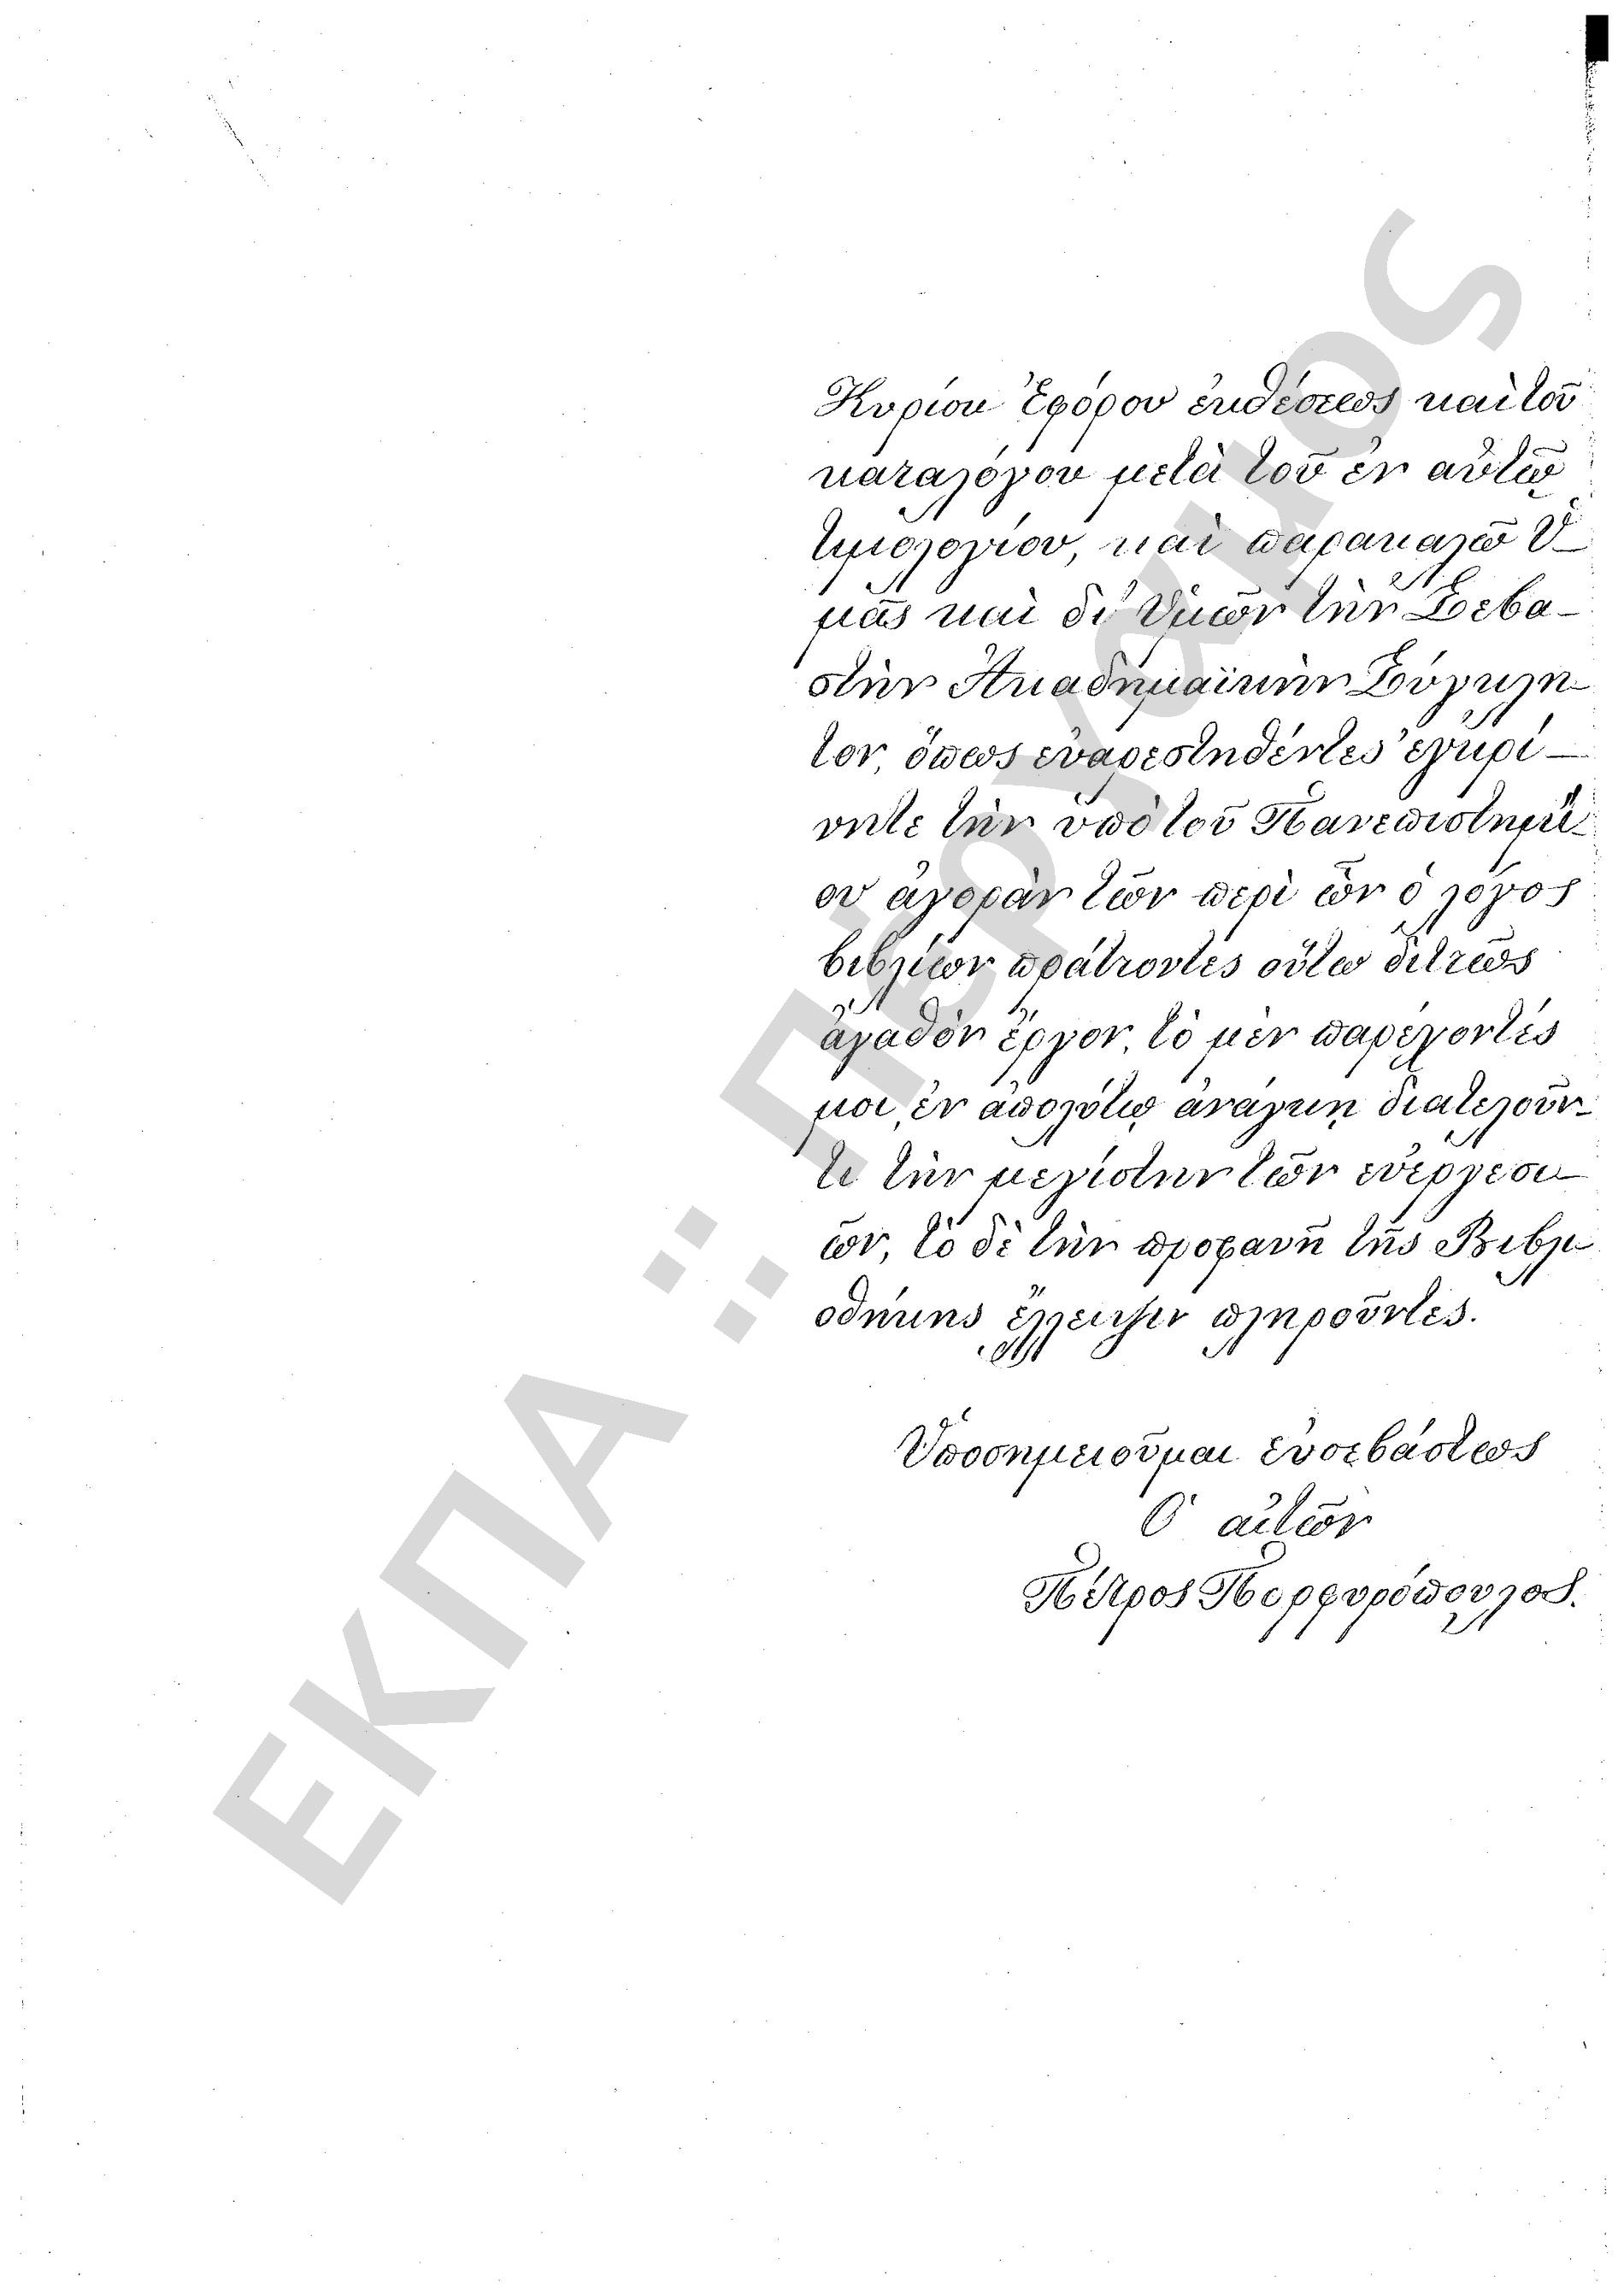 Κυρίου Ἐφόρου ἐκθέσεως καὶ τοῦ
καταλόγου μετὰ τοῦ ἐν αὐτῷ
τιμολογίου, καὶ παρακαλῶ Ὑ-
μᾶς καὶ δι' Ὑμῶν τὴν Σεβα-
στὴν Ἀκαδημαϊκὴν Σύγκλη-
τον, ὅπως εὐαρεστηθέντες ἐγκρί-
νητε τὴν ὑπὸ τοῦ Πανεπιστημί-
ου ἀγορὰν τῶν περὶ ὧν ὁ λόγος
βιβλίων πράττοντες οὕτω διττῶς
ἀγαθὸν ἔργον, τὸ μὲν παρέχοντές
μοι, ἐν ἀπολύτῳ ἀνάγκῃ διατελοῦν-
τι τὴν μεγίστην τῶν εὐεργεσι-
ῶν, τὸ δὲ τὴν προφανῆ τῆς Βιβλι
οθήκης ἔλλειψιν πληροῦντες.
Ὑποσημειοῦμαι εὐσεβάστως
Ὁ αἰτῶν
Πέτρος Πορφυρόπουλος.
ΕΚΠΑ :: Πέργαμος